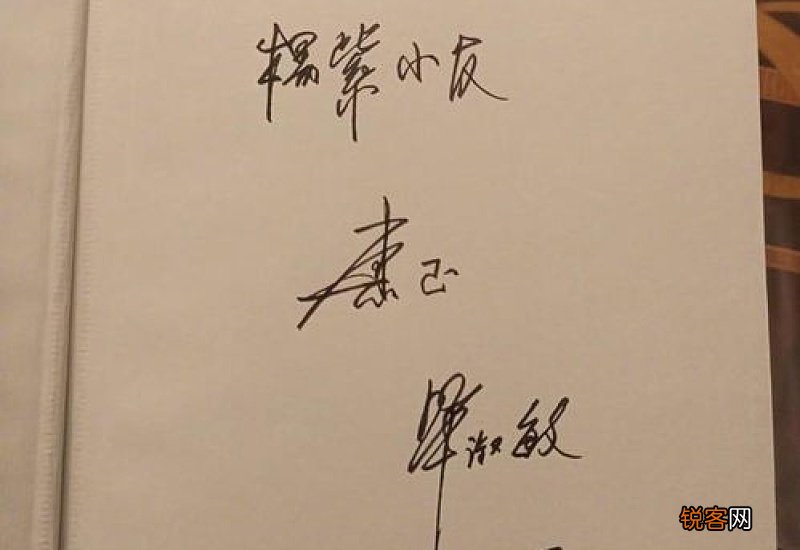 杨紫小友
惠正
毕淑敏
锐客网